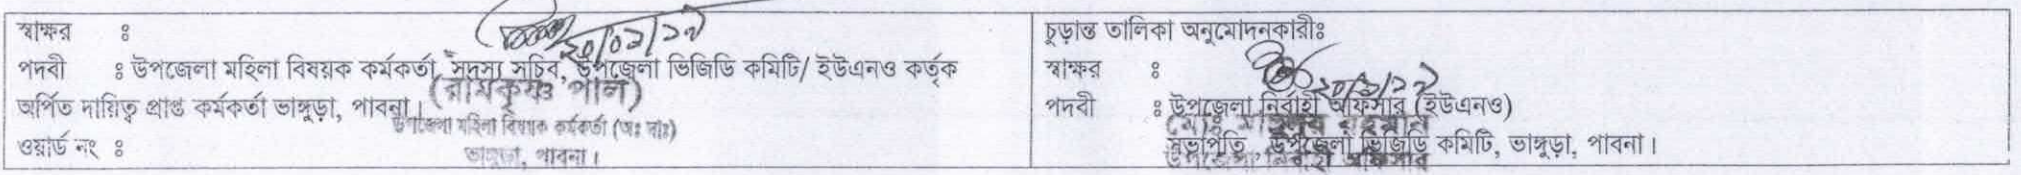 স্বাক্ষর ঃ
পদবী ঃ উপজেলা মহিলা বিষয়ক কর্মকর্তা, সদস্য সচিব, উপজেলা ভিজিডি কমিটি/ ইউএনও কর্তৃক
অর্পিত দায়িত্ব প্রাপ্ত কর্মকর্তা ভাঙ্গুড়া, পাবনা।
(রামকৃষ্ণ পাল)
উপজেলা মহিলা বিষয়ক কর্মকর্তা (অঃ দাঃ)
ভাঙ্গুড়া, পাবনা।
ওয়ার্ড নং ঃ
চুড়ান্ত তালিকা অনুমোদনকারীঃ
স্বাক্ষর ঃ
পদবী ঃ উপজেলা নির্বাহী অফিসার (ইউএনও)
সভাপতি, উপজেলা ভিজিডি কমিটি, ভাঙ্গুড়া, পাবনা।
উপজেলা নির্বাহী অফিসার